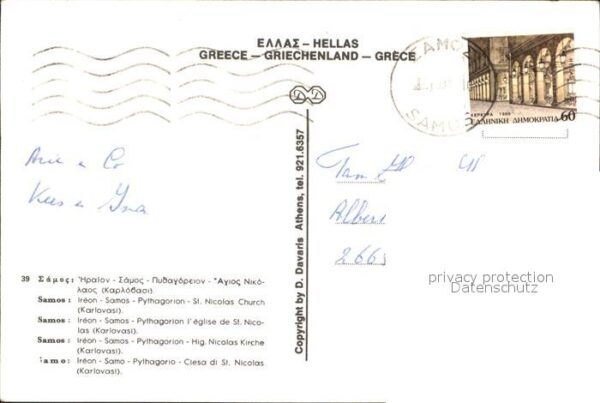 ΕΛΛΑΣ – HELLAS
GREECE – GRIECHENLAND – GRÈCE
ΣΑΜΟΣ
SAMOS
ΚΕΡΚΥΡΑ
ΕΛΛΗΝΙΚΗ ΔΗΜΟΚΡΑΤΙΑ 60
Copyright by D. Davaris Athens, tel. 921.6357
Arie & Co
Kees &
Fam
Albers
2665
privacy protection
Datenschutz
39 Σάμος: Ἡραῖον - Σάμος - Πυθαγόρειον - Ἅγιος Νικό-
λαος (Καρλόβασι).
Samos: Iréon - Samos - Pythagorion - St. Nicolas Church
(Karlovasi).
Samos: Iréon - Samos - Pythagorion l'église de St. Nico-
las (Karlovasi).
Samos: Iréon - Samos - Pythagorion - Hig. Nicolas Kirche
(Karlovasi).
Samo: Iréon - Samo - Pythagorio - Ciesa di St. Nicolas
(Karlovasi).